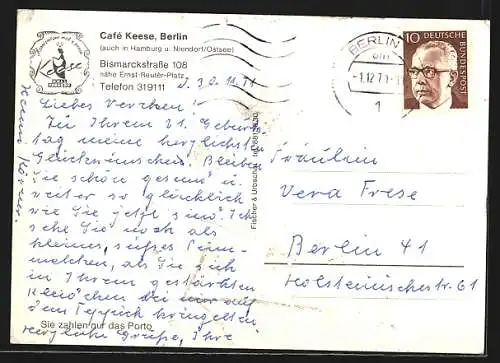 Café Keese, Berlin
(auch in Hamburg u. Niendorf/Ostsee)
Bismarckstraße 108
nahe Ernst-Reuter-Platz
Telefon 319111
Keese
d. 30.11.71
BERLIN
-1.12.71
1
10
DEUTSCHE BUNDESPOST
Liebes Verchen!
Zu Ihrem 21. Geburts-
tag meine herzlichsten
Glückwünsche. Bleiben
Sie schön gesund u.
weiter so glücklich
wie Sie jetzt sind. Ich
sehe Sie noch als
kleines, süßes
als Sie sich
in Ihrem gestärkten
Kleidchen bei auf
dem Teppich kringelten
Herzliche Grüße, Ihre
Sie zahlen nur das Porto
Fischer & Urbschat
Fräulein
Vera Frese
Berlin 41
Holsteinischestr. 61